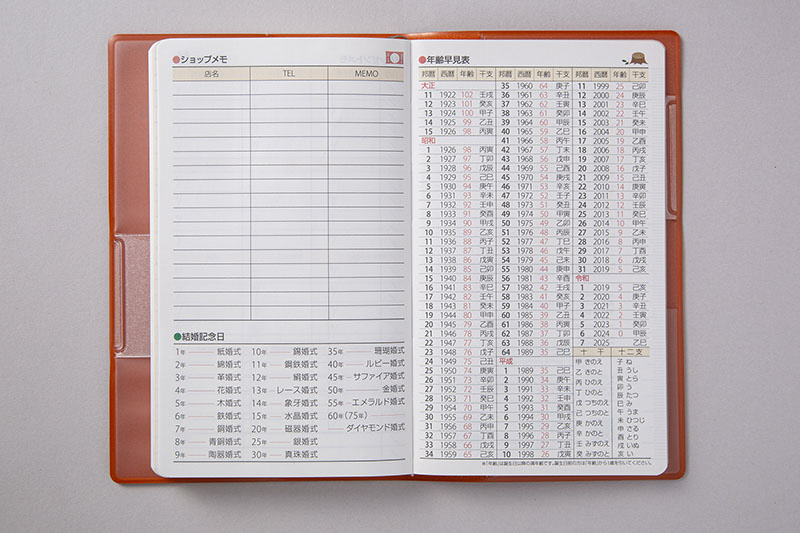 ●ショップメモ
店名 TEL MEMO
●結婚記念日
1年 紙婚式 10年 錫婚式 35年 珊瑚婚式
2年 綿婚式 11年 鋼鉄婚式 40年 ルビー婚式
3年 革婚式 12年 絹婚式 45年 サファイア婚式
4年 花婚式 13年 レース婚式 50年 金婚式
5年 木婚式 14年 象牙婚式 55年 エメラルド婚式
6年 鉄婚式 15年 水晶婚式 60年(75年)
7年 銅婚式 20年 磁器婚式 ダイヤモンド婚式
8年 青銅婚式 25年 銀婚式
9年 陶器婚式 30年 真珠婚式
●年齢早見表
邦暦 西暦 年齢 干支
大正
11 1922 102 壬戌
12 1923 101 癸亥
13 1924 100 甲子
14 1925 99 乙丑
15 1926 98 丙寅
昭和
1 1926 98 丙寅
2 1927 97 丁卯
3 1928 96 戊辰
4 1929 95 己巳
5 1930 94 庚午
6 1931 93 辛未
7 1932 92 壬申
8 1933 91 癸酉
9 1934 90 甲戌
10 1935 89 乙亥
11 1936 88 丙子
12 1937 87 丁丑
13 1938 86 戊寅
14 1939 85 己卯
15 1940 84 庚辰
16 1941 83 辛巳
17 1942 82 壬午
18 1943 81 癸未
19 1944 80 甲申
20 1945 79 乙酉
21 1946 78 丙戌
22 1947 77 丁亥
23 1948 76 戊子
24 1949 75 己丑
25 1950 74 庚寅
26 1951 73 辛卯
27 1952 72 壬辰
28 1953 71 癸巳
29 1954 70 甲午
30 1955 69 乙未
31 1956 68 丙申
32 1957 67 丁酉
33 1958 66 戊戌
34 1959 65 己亥
邦暦 西暦 年齢 干支
35 1960 64 庚子
36 1961 63 辛丑
37 1962 62 壬寅
38 1963 61 癸卯
39 1964 60 甲辰
40 1965 59 乙巳
41 1966 58 丙午
42 1967 57 丁未
43 1968 56 戊申
44 1969 55 己酉
45 1970 54 庚戌
46 1971 53 辛亥
47 1972 52 壬子
48 1973 51 癸丑
49 1974 50 甲寅
50 1975 49 乙卯
51 1976 48 丙辰
52 1977 47 丁巳
53 1978 46 戊午
54 1979 45 己未
55 1980 44 庚申
56 1981 43 辛酉
57 1982 42 壬戌
58 1983 41 癸亥
59 1984 40 甲子
60 1985 39 乙丑
61 1986 38 丙寅
62 1987 37 丁卯
63 1988 36 戊辰
64 1989 35 己巳
平成
1 1989 35 己巳
2 1990 34 庚午
3 1991 33 辛未
4 1992 32 壬申
5 1993 31 癸酉
6 1994 30 甲戌
7 1995 29 乙亥
8 1996 28 丙子
9 1997 27 丁丑
10 1998 26 戊寅
邦暦 西暦 年齢 干支
11 1999 25 己卯
12 2000 24 庚辰
13 2001 23 辛巳
14 2002 22 壬午
15 2003 21 癸未
16 2004 20 甲申
17 2005 19 乙酉
18 2006 18 丙戌
19 2007 17 丁亥
20 2008 16 戊子
21 2009 15 己丑
22 2010 14 庚寅
23 2011 13 辛卯
24 2012 12 壬辰
25 2013 11 癸巳
26 2014 10 甲午
27 2015 9 乙未
28 2016 8 丙申
29 2017 7 丁酉
30 2018 6 戊戌
31 2019 5 己亥
令和
1 2019 5 己亥
2 2020 4 庚子
3 2021 3 辛丑
4 2022 2 壬寅
5 2023 1 癸卯
6 2024 0 甲辰
7 2025 乙巳
十干 十二支
甲 きのえ
乙 きのと
丙 ひのえ
丁 ひのと
戊 つちのえ
己 つちのと
庚 かのえ
辛 かのと
壬 みずのえ
癸 みずのと
子 ね
丑 うし
寅 とら
卯 う
辰 たつ
巳 み
午 うま
未 ひつじ
申 さる
酉 とり
戌 いぬ
亥 い
※「年齢」は誕生日以降の満年齢です。誕生日前の方は「年齢」から1歳を引いてください。